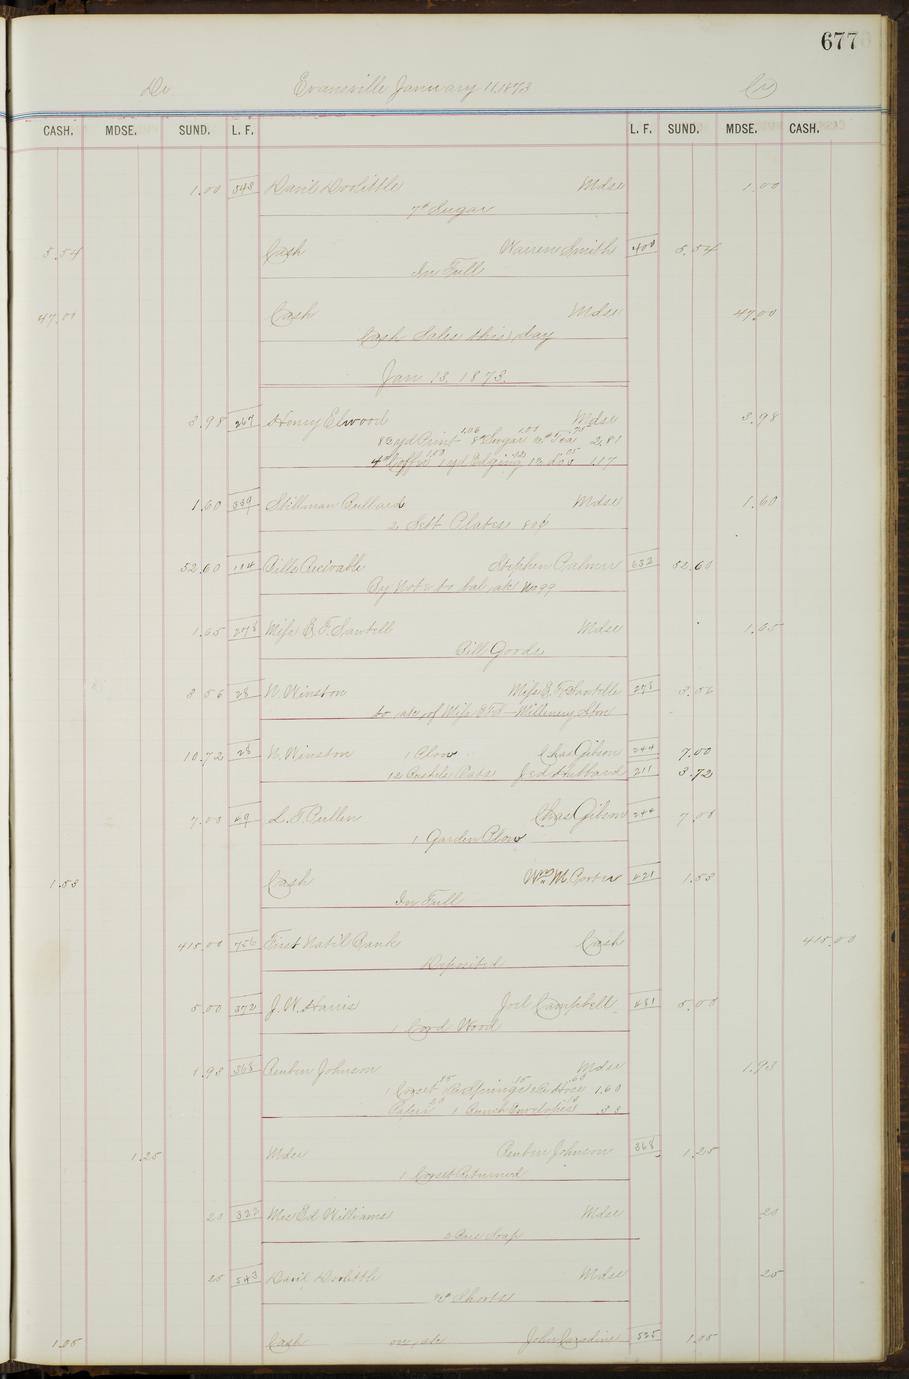 677
Dr Evansville January 11, 1873 Cr
CASH. MDSE. SUND. L. F. L. F. SUND. MDSE. CASH.
1.00 543 David Doolittle Mdse 1.00
7# Sugar
5.54 Cash Warren Smith 400 5.54
In Full
47.00 Cash Mdse 47.00
Cash Sales this day
Jan 13, 1873.
3.98 267 Henry Elwood Mdse 3.98
Print 8# Sugar Tea 2.81
4# Coffee 1 yd Edging 1.17
1.60 339 Stillman Bullard Mdse 1.60
2 Sett Plates 80¢
52.60 104 Bills Recivable Stephen Palmer 632 52.60
By Note to bal a/c No 99
1.65 278 Miss E. F. Sawtell Mdse 1.65
Bill Goods
8 56 28 N. Winston Miss E. F. Sawtelle 278 8.56
to a/c of Miss E F S Millinery Store
10.72 28 N. Winston 1 Plow Chas Gibson 244 7.00
12 Bushels Oats Hubbard 211 3.72
7.00 49 L. T. Pullen Chas Gibson 244 7.00
1 Garden Plow
1.53 Cash Wm M 421 1.53
In Full
415.00 756 First Nat'l Bank Cash 415.00
Deposited
5.00 372 J. W. Harris Joel Campbell 481 5.00
1 Cord Wood
1.93 368 Reuben Johnson Mdse 1.93
1 Corset Hose 1.60
Paper 1 Bunch Envelopes 33
1.25 Mdse Reuben Johnson 368 1.25
1 Corset Returned
20 322 Mrs Ed Williams Mdse 20
Soap
25 543 David Doolittle Mdse 25
Shorts
1.05 Cash on a/c John 525 1.05